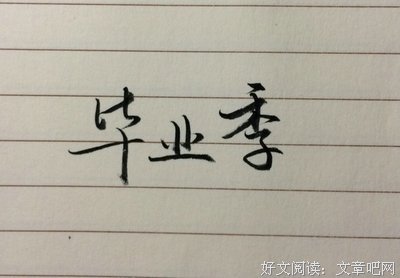 毕业季
好文阅读：文章吧网